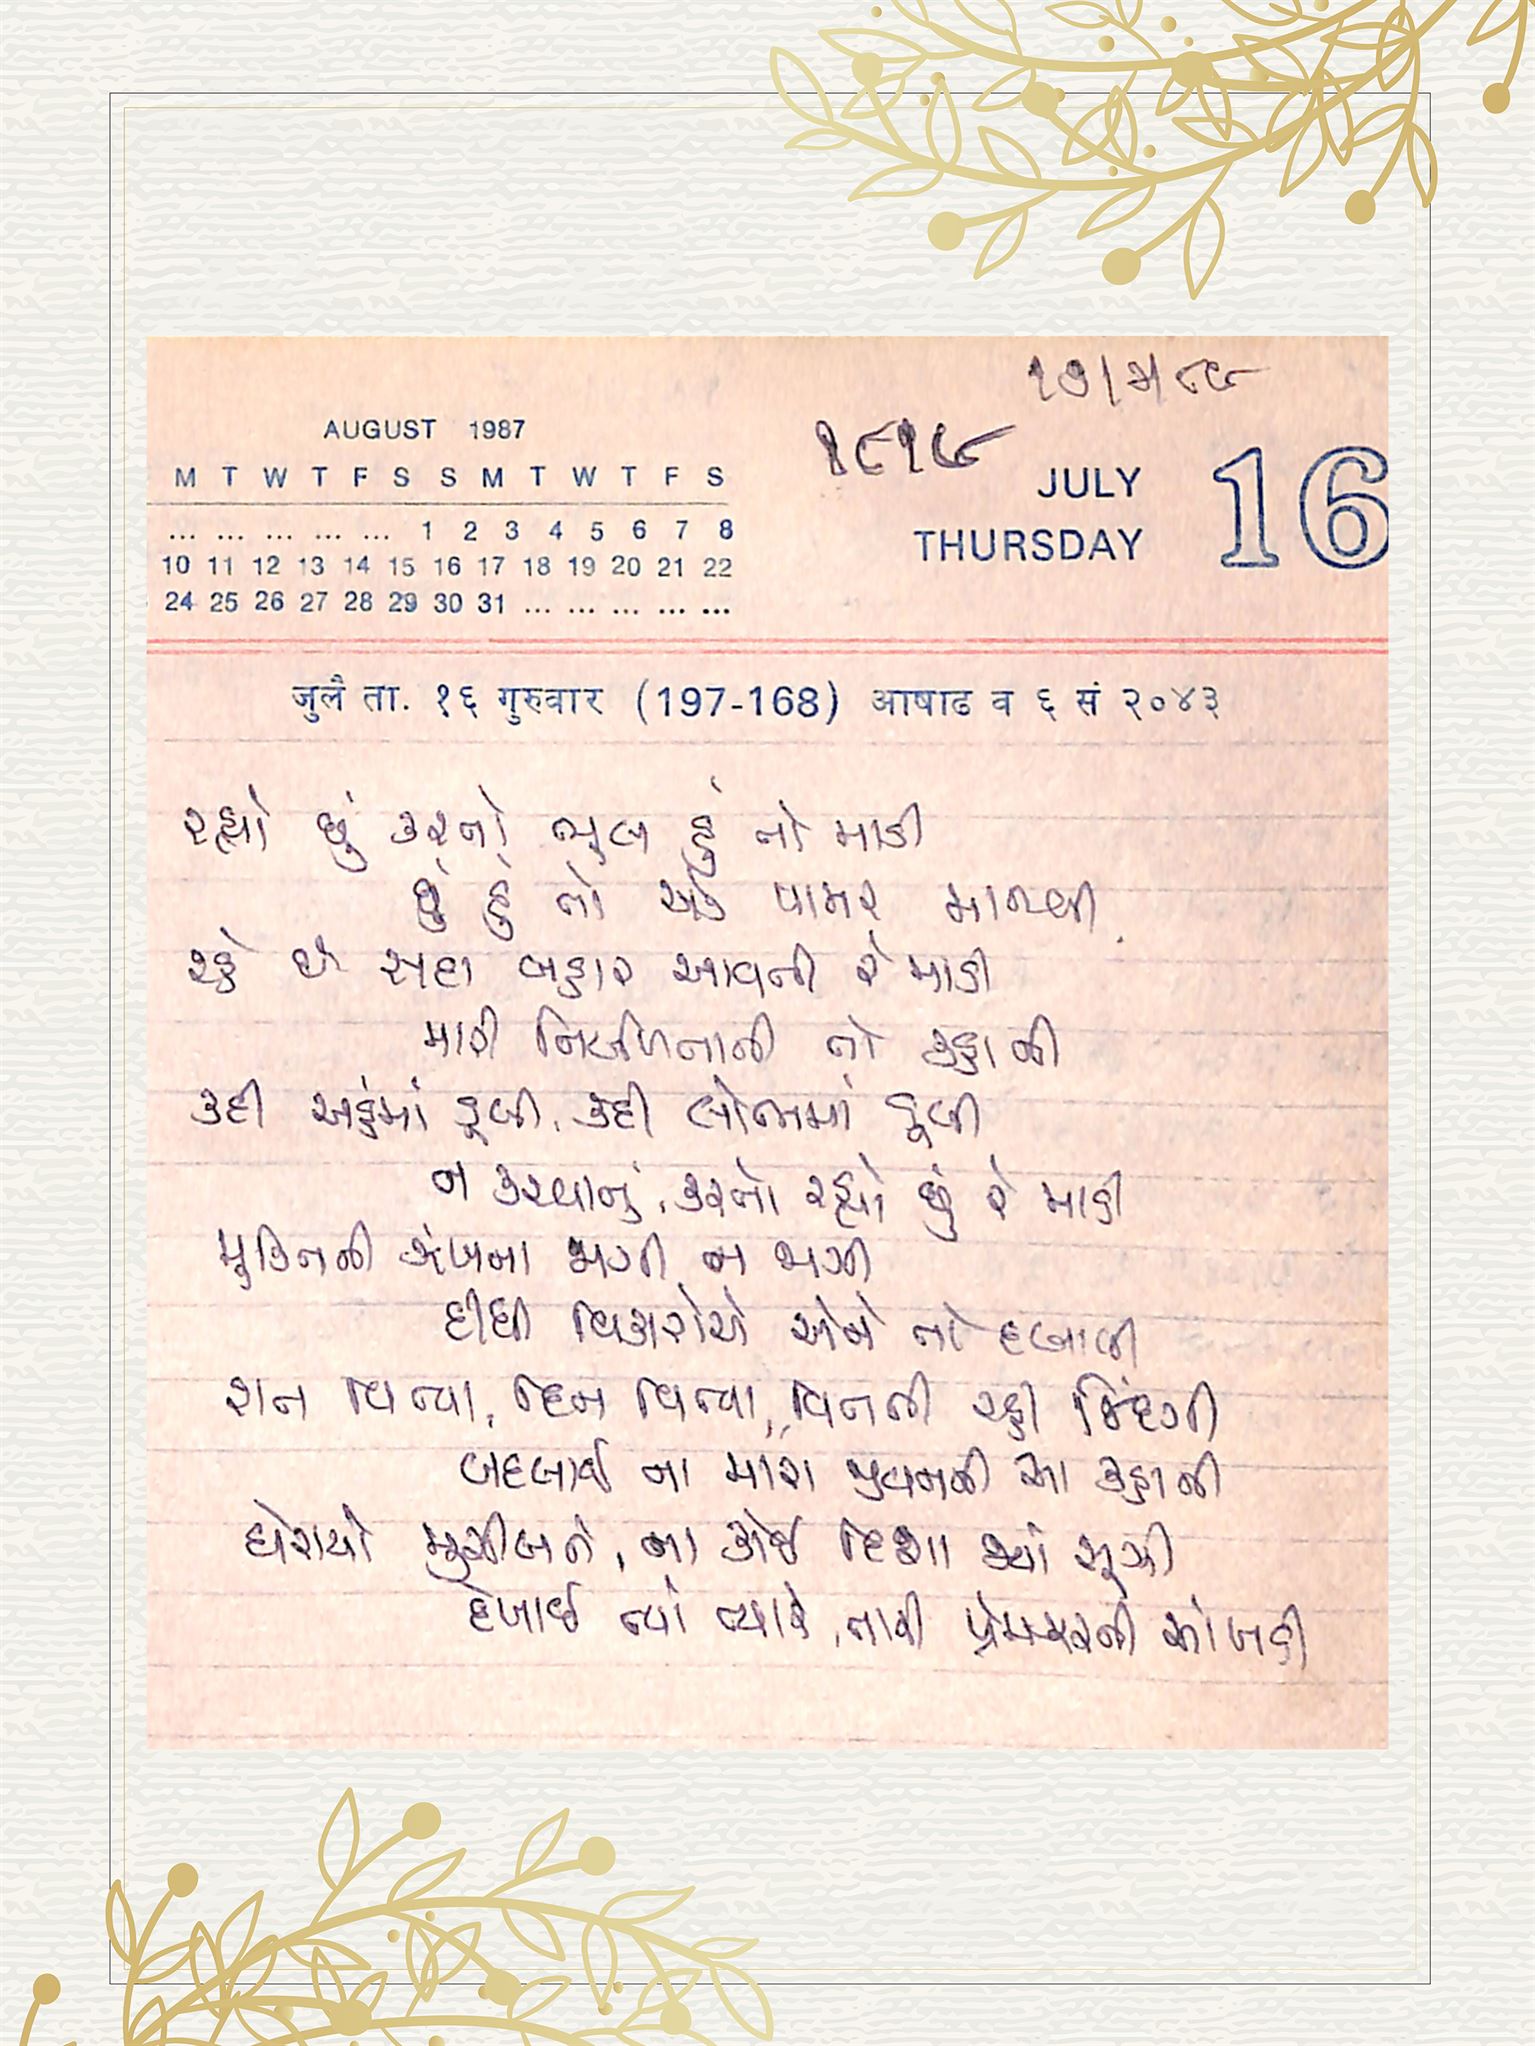 ૧૭/૫/૮૯
૧૮૧૯
AUGUST 1987
M T W T F S S M T W T F S
... ... ... ... ... 1 2 3 4 5 6 7 8
10 11 12 13 14 15 16 17 18 19 20 21 22
24 25 26 27 28 29 30 31 ... ... ... ... ...
JULY 16
THURSDAY
जुलै ता. १६ गुरुवार (197-168) आषाढ व ६ सं २०४३
રહ્યો છું કરતો ભૂલ હું તો માડી
છું હું તો એક પામર માનવી
રહે છે સદા બહાર આવતી રે માડી
મારી નિર્બળતાની તો કહાની
કદી અહંમાં ડૂબી, કદી લોભમાં ડૂબી
ન કરવાનું, કરતો રહ્યો છું રે માડી
મુક્તિની ઝંખના જાગી ન જાગી
દીધી વિકારોએ એને તો દબાવી
રાત વિત્યા, દિન વિત્યા, વિતતી રહી જિંદગી
બદલાઈ ના મારા જીવનની આ કહાની
ઘેરાયો મુસીબતે, ના કોઈ દિશા જ્યાં સૂઝી
દેખાઈ ત્યાં ત્યારે, તારી પ્રેમભરની આંખડી